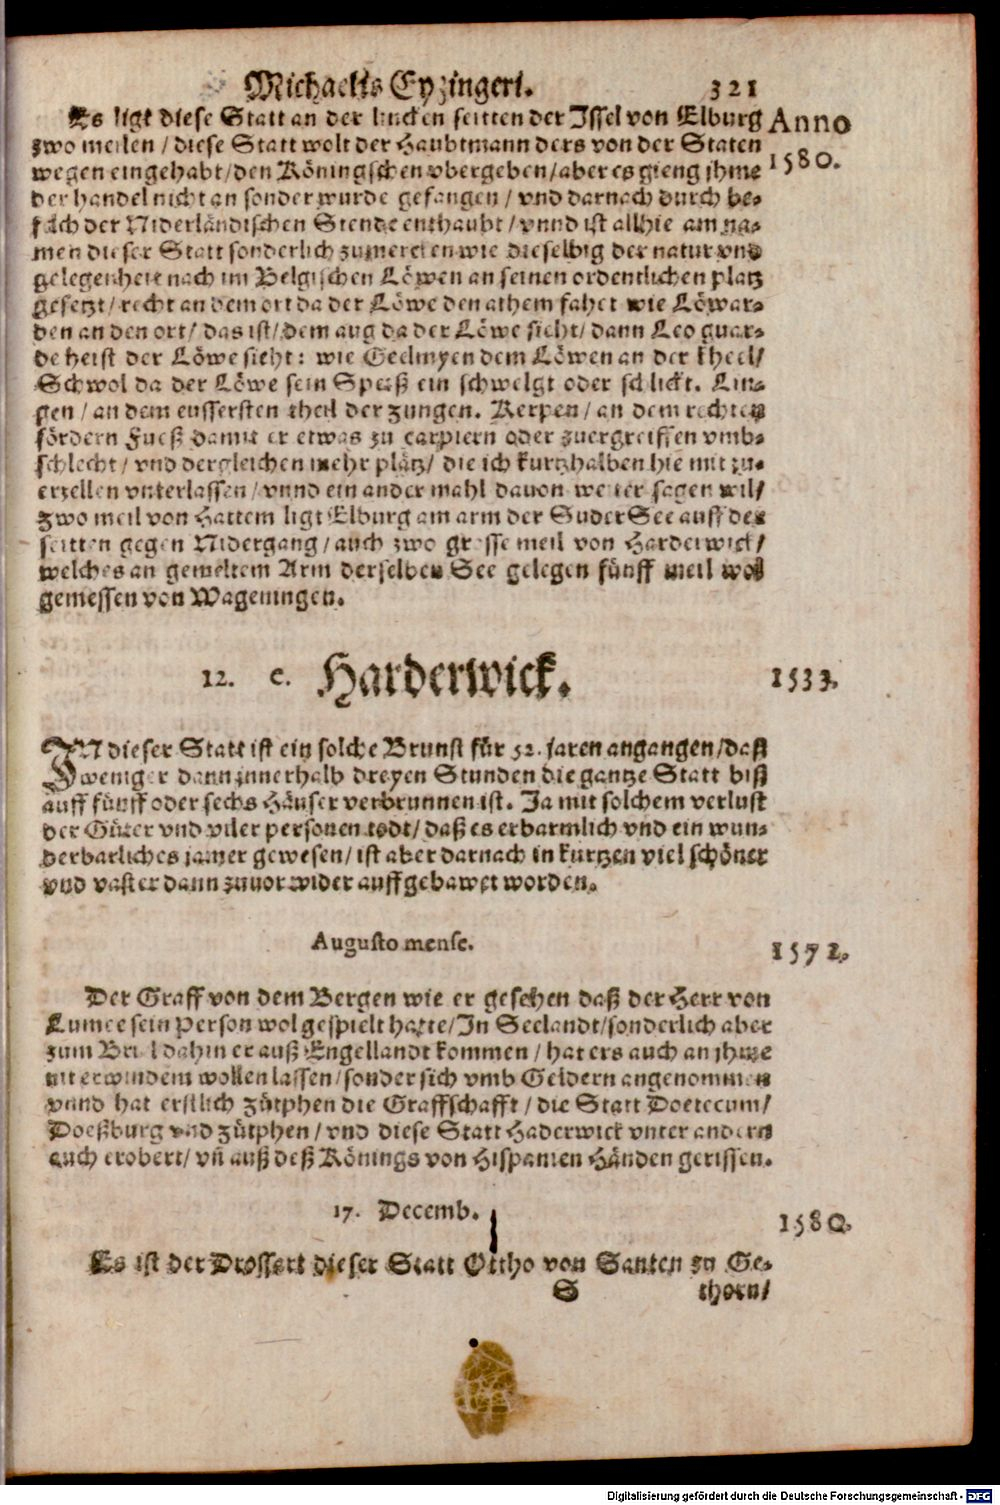 Michaelis Eyzingeri. 321
Es ligt diese Statt an der lincken seitten der Issel von Elburg
Anno
zwo meilen / diese Statt wolt der Haubtmann ders von der Staten
1580.
wegen eingehabt / den Köningschen vbergeben / aber es gieng jhme
der handel nicht an sonder wurde gefangen / vnd darnach durch be-
felch der Niderländischen Stende enthaubt / vnnd ist allhie am na-
men dieser Statt sonderlich zumercken wie dieselbig der natur vnd
gelegenheit nach im Belgischen Löwen an seinen ordentlichen platz
gesetzt / recht an dem ort da der Löwe den athem fahet wie Löwar-
den an den ort / das ist / dem aug da der Löwe sieht / dann Leo guar-
de heist der Löwe sieht: wie Geelmyen dem Löwen an der kheel /
Schwol da der Löwe sein Speiß ein schwelgt oder schlickt. Lin-
gen / an dem eussersten theil der zungen. Kerpen / an dem rechten
fördern Fueß damit er etwas zu carpiern oder zuergreiffen vmb-
schlecht / vnd dergleichen mehr plätz / die ich kurtzhalben hie mit zu-
erzellen vnterlassen / vnnd ein ander mahl dauon weiter sagen wil /
zwo meil von Hattem ligt Elburg am arm der Suder See auff der
seitten gegen Nidergang / auch zwo grosse meil von Harderwick /
welches an gemeltem Arm derselben See gelegen fünff meil wol
gemessen von Wageningen.
12. e. Harderwick.
1533.
IN dieser Statt ist ein solche Brunst für 52. jaren angangen / daß
weniger dann innerhalb dreyen Stunden die gantze Statt biß
auff fünff oder sechs Häuser verbrunnen ist. Ja mit solchem verlust
der Güter vnd viler personen todt / daß es erbarmlich vnd ein wun-
derbarliches jamer gewesen / ist aber darnach in kurtzen viel schöner
vnd vaster dann zuuor wider auffgebawet worden.
Augusto mense.
1572.
Der Graff von dem Bergen wie er gesehen daß der Herr von
Lumee sein Person wol gespielt hatte / In Seelandt / sonderlich aber
zum Briel dahin er auß Engellandt kommen / hat ers auch an jhme
nit erwindem wollen lassen / sonder sich vmb Geldern angenommen
vnnd hat erstlich Zütphen die Graffschafft / die Statt Doetecum /
Doeßburg vnd Zütphen / vnd diese Statt Haderwick vnter andern
auch erobert / vñ auß deß Königs von Hispanien Händen gerissen.
17. Decemb.
1580.
Es ist der Drossert dieser Statt Ottho von Santen zu Ge-
S thorn /
Digitalisierung gefördert durch die Deutsche Forschungsgemeinschaft - DFG